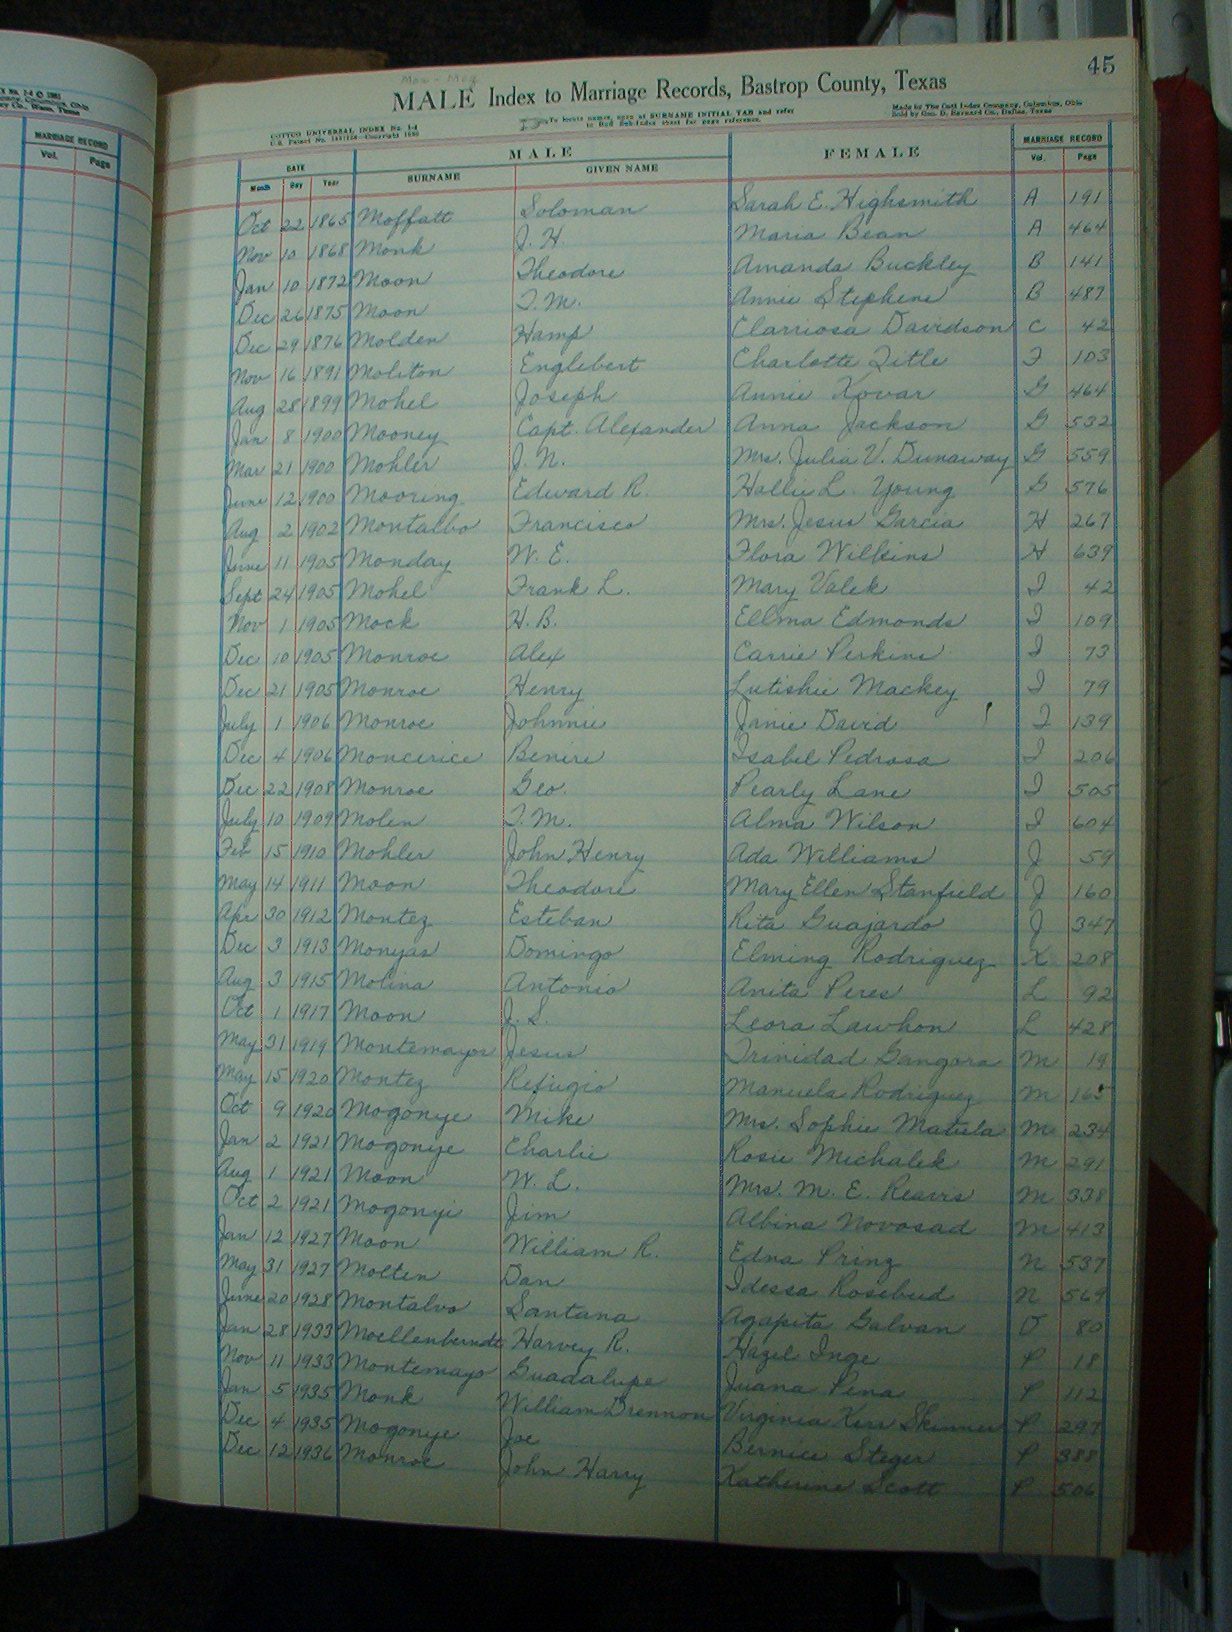 45
Mom - Moq
MALE Index to Marriage Records, Bastrop County, Texas
COTTCO UNIVERSAL INDEX No. 1-4
To locate names, open at SURNAME INITIAL TAB and refer
Made by The Cott Index Company, Columbus, Ohio
to Red Sub-Index sheet for page reference.
Sold by Geo. D. Barnard Co., Dallas, Texas
DATE MALE FEMALE MARRIAGE RECORD
Month Day Year SURNAME GIVEN NAME Vol. Page
Oct 22 1865 Moffatt Soloman Sarah E. Highsmith A 191
Nov 10 1868 Monk J. H. Maria Bean A 464
Jan 10 1872 Moon Theodore Amanda Buckley B 141
Dec 26 1875 Moon T. M. Annie Stephens B 487
Dec 29 1876 Molden Hamp Clarriosa Davidson C 42
Nov 16 1891 Moliton Englebert Charlotte Zitle F 103
Aug 28 1899 Mohel Joseph Annie Kovar G 464
Jan 8 1900 Mooney Capt. Alexander Anna Jackson G 532
Mar 21 1900 Mohler J. N. Mrs. Julia V. Dunaway G 559
June 12 1900 Mooring Edward R. Hallie L. Young G 576
Aug 2 1902 Montalbo Francisco Mrs. Jesus Garcia H 267
June 11 1905 Monday W. E. Flora Wilkins H 639
Sept 24 1905 Mohel Frank L. Mary Valek I 42
Nov 1 1905 Mock H. B. Ellma Edmonds I 109
Dec 10 1905 Monroe Alex Carrie Perkins I 73
Dec 21 1905 Monroe Henry Lutishie Mackey I 79
July 1 1906 Monroe Johnnie Janie David I 139
Dec 4 1906 Moncerice Benire Isabel Pedrosa I 206
Dec 22 1908 Monroe Geo. Pearly Lane I 505
July 10 1909 Molen T. M. Alma Wilson I 604
Feb 15 1910 Mohler John Henry Ada Williams J 59
May 14 1911 Moon Theodore Mary Ellen Stanfield J 160
Apr 30 1912 Montez Esteban Rita Guajardo J 347
Dec 3 1913 Monyas Domingo Elming Rodriguez K 208
Aug 3 1915 Molina Antonio Anita Peres L 92
Oct 1 1917 Moon J. S. Leora Lawhon L 428
May 31 1919 Montemayor Jesus Trinidad Gangora M 19
May 15 1920 Montez Refugio Manuela Rodriguez M 165
Oct 9 1920 Mogonye Mike Mrs. Sophie Matula M 234
Jan 2 1921 Mogonye Charlie Rosie Michalek M 291
Aug 1 1921 Moon W. L. Mrs. M. E. Reavis M 338
Oct 2 1921 Mogonyi Jim Albina Novosad M 413
Jan 12 1927 Moon William R. Edna Prinz N 537
May 31 1927 Molten Dan Idessa Rosebud N 569
June 20 1928 Montalvo Santana Agapita Galvan O 80
Jan 28 1933 Moellenberndt Harvey R. Hazel Inge P 18
Nov 11 1933 Montemayo Guadalupe Juana Pena P 112
Jan 5 1935 Monk William Drennon Virginia Kerr Skinner P 297
Dec 4 1935 Mogonye Joe Bernice Steger P 388
Dec 12 1936 Monroe John Harry Katherine Scott P 506
MARRIAGE RECORD
Vol. Page